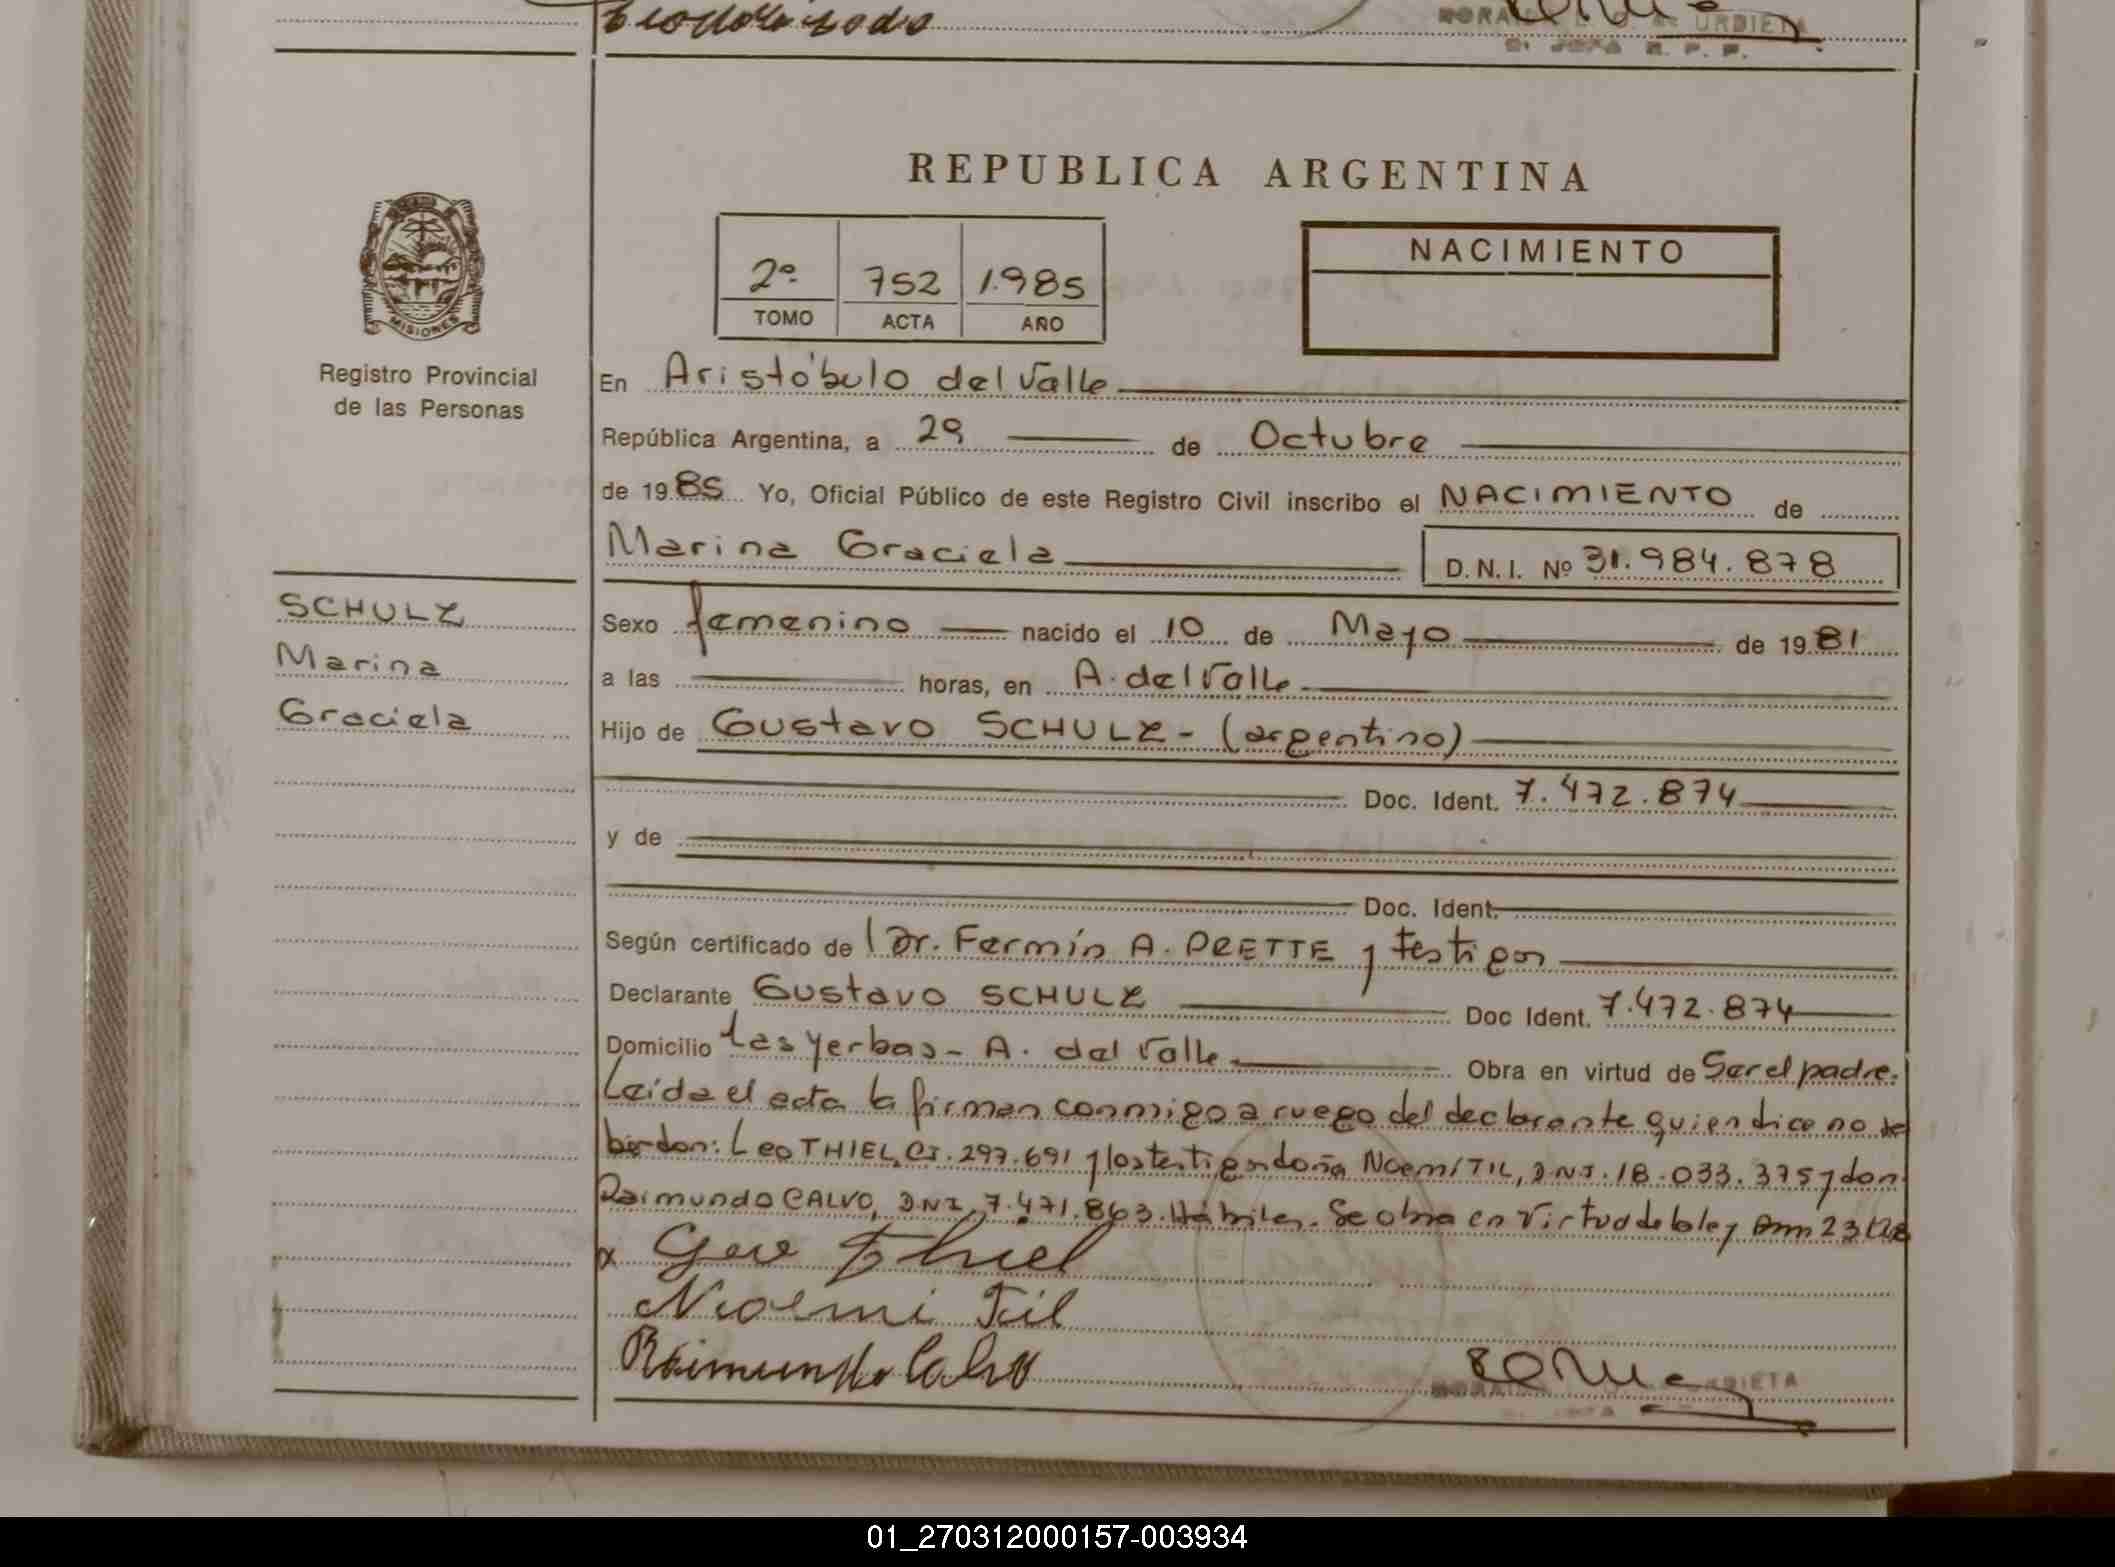 URDIETA
REPUBLICA ARGENTINA
2º 752 1.985
TOMO ACTA AÑO
NACIMIENTO
MISIONES
Registro Provincial
de las Personas
En Aristóbulo del Valle
República Argentina, a 29 de Octubre
de 1985 Yo, Oficial Público de este Registro Civil inscribo el NACIMIENTO de
Marina Graciela D.N.I. Nº 31.984.878
SCHULZ
Marina
Graciela
Sexo femenino nacido el 10 de Mayo de 1981
a las horas, en A. del Valle
Hijo de Gustavo SCHULZ - (argentino)
Doc. Ident. 7.472.874
y de
Doc. Ident.
Según certificado de Dr. Fermín A. PRETTE y testigos
Declarante Gustavo SCHULZ Doc Ident. 7.472.874
Domicilio Las Yerbas - A. del Valle Obra en virtud de Ser el padre.
Leída el acta la firman conmigo a ruego del declarante quien dice no
don: Leo THIEL, CI. 297.691 y los testigos doña Noemí TIL, DNI. 18.033.375 y don
Raimundo CALVO, DNI. 7.471.863. Hábiles. Se obra en virtud de la ley
x Geo Thiel
Noemi Til
Raimundo Calvo
URDIETA
01_270312000157-003934